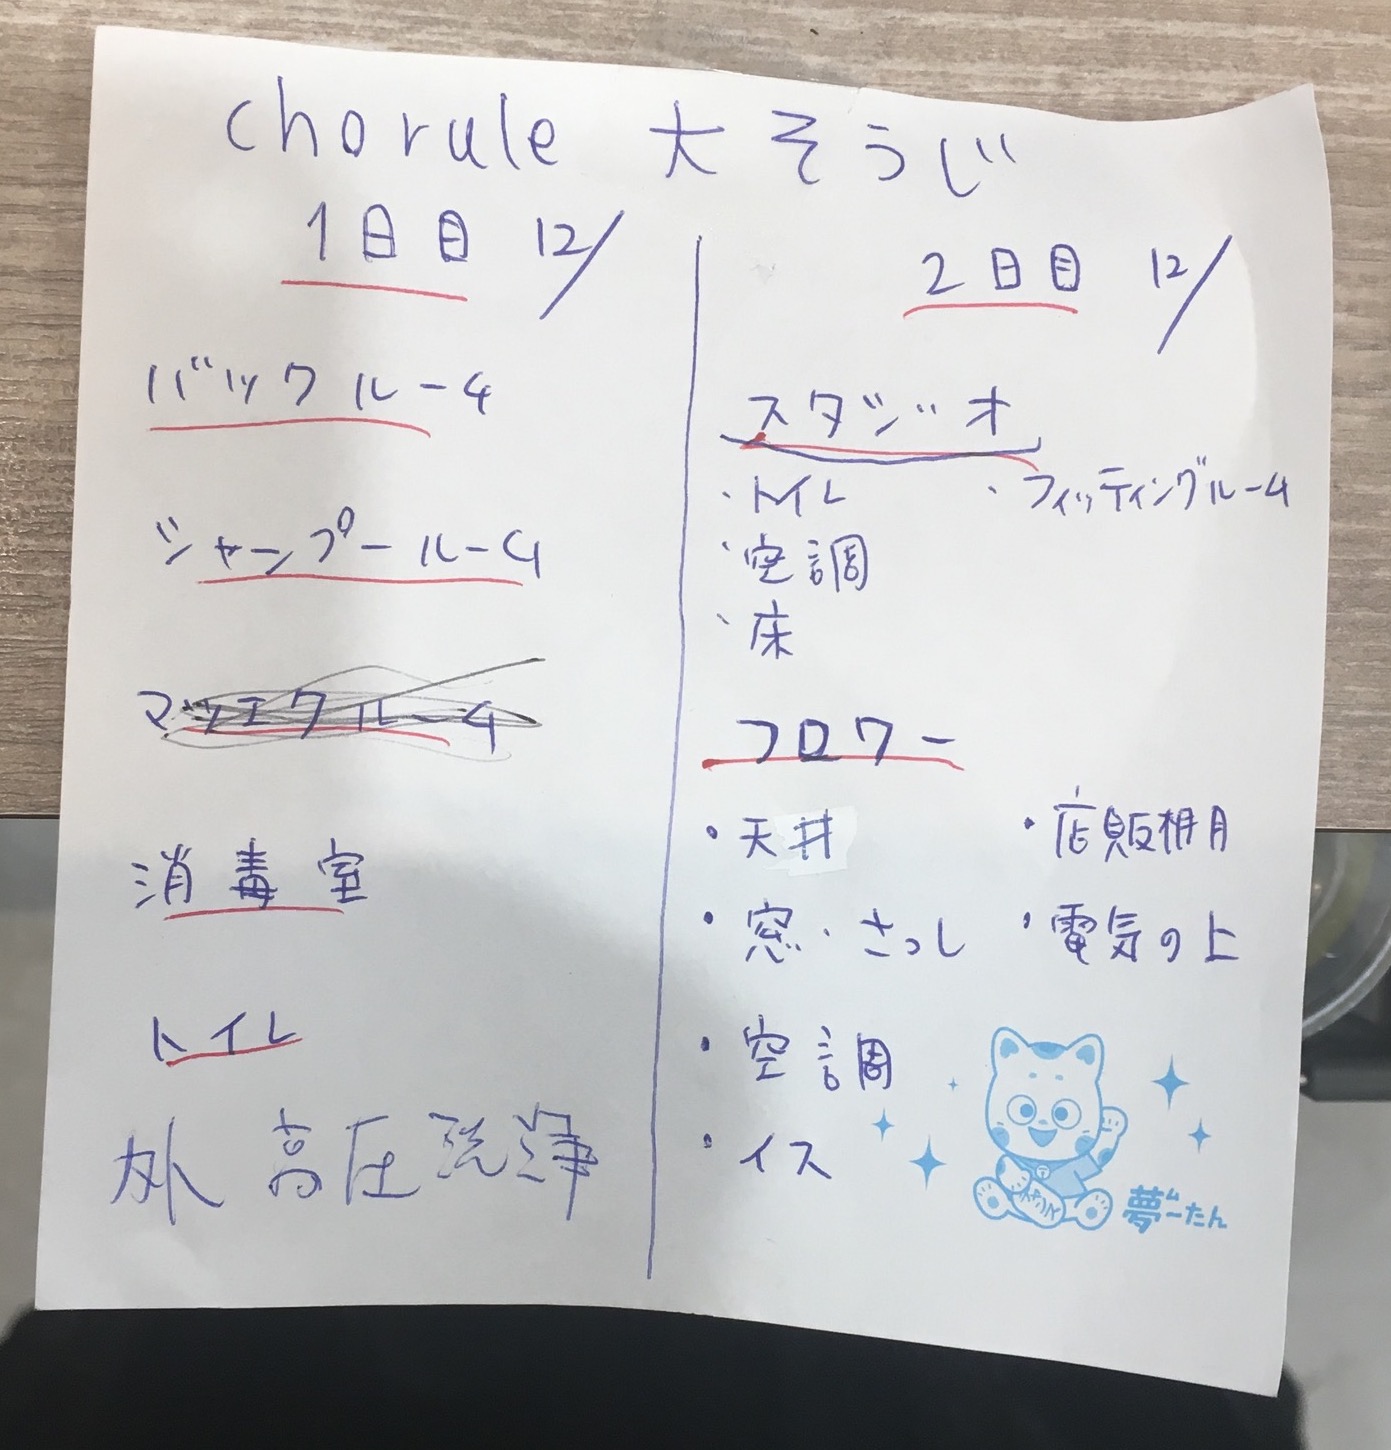 chorule 大そうじ
1日目 12/
バックルーム
シャンプールーム
マツエクルーム
消毒室
トイレ
外 高圧洗浄
2日目 12/
スタジオ
・トイレ ・フィッティングルーム
・空調
・床
フロワー
・天井 ・店販棚
・窓・さっし ・電気の上
・空調
・イス
夢ムーたん